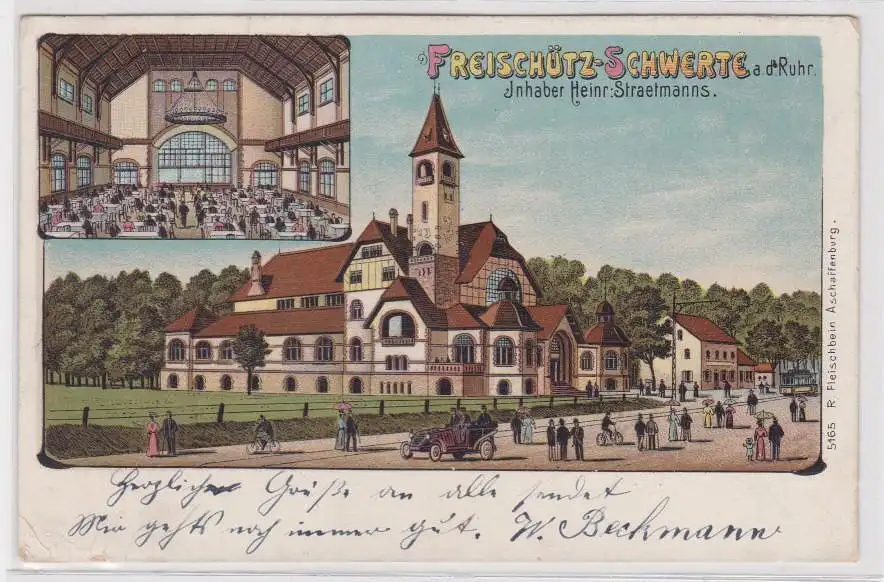 FREISCHÜTZ-SCHWERTE a. d. Ruhr.
Inhaber Heinr: Straetmanns.
5165 R. Fleischbein Aschaffenburg.
Herzliche Grüße an alle sendet
Mir gehts noch immer gut. W. Beckmann